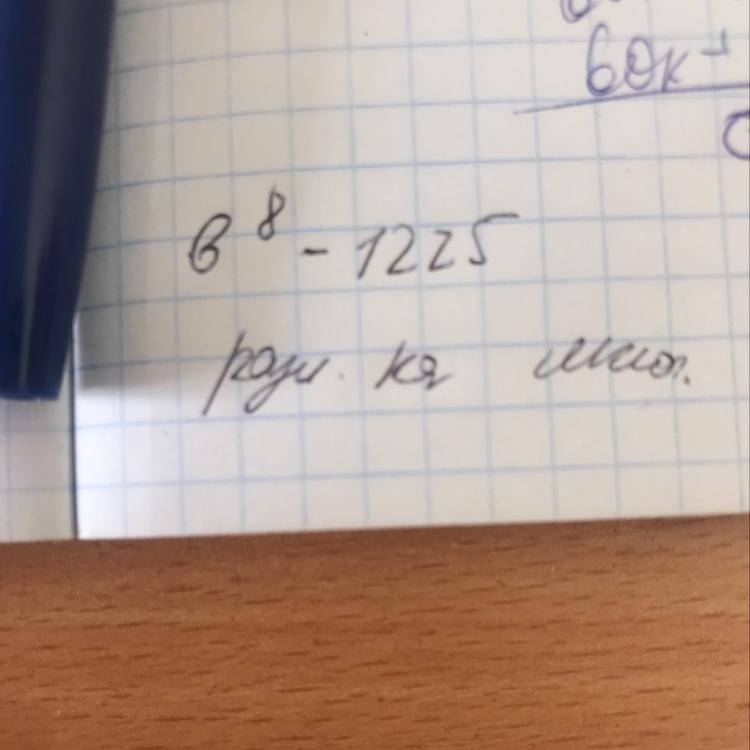 60к-1
в⁸ - 1225
разл. на множ.